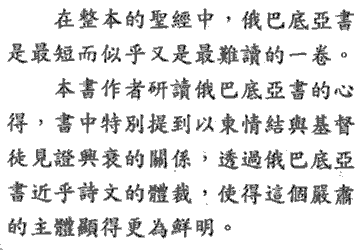 在整本的聖經中，俄巴底亞書
是最短而似乎又是最難讀的一卷。
本書作者研讀俄巴底亞書的心
得，書中特別提到以東情結與基督
徒見證興衰的關係，透過俄巴底亞
書近乎詩文的體裁，使得這個嚴肅
的主體顯得更為鮮明。